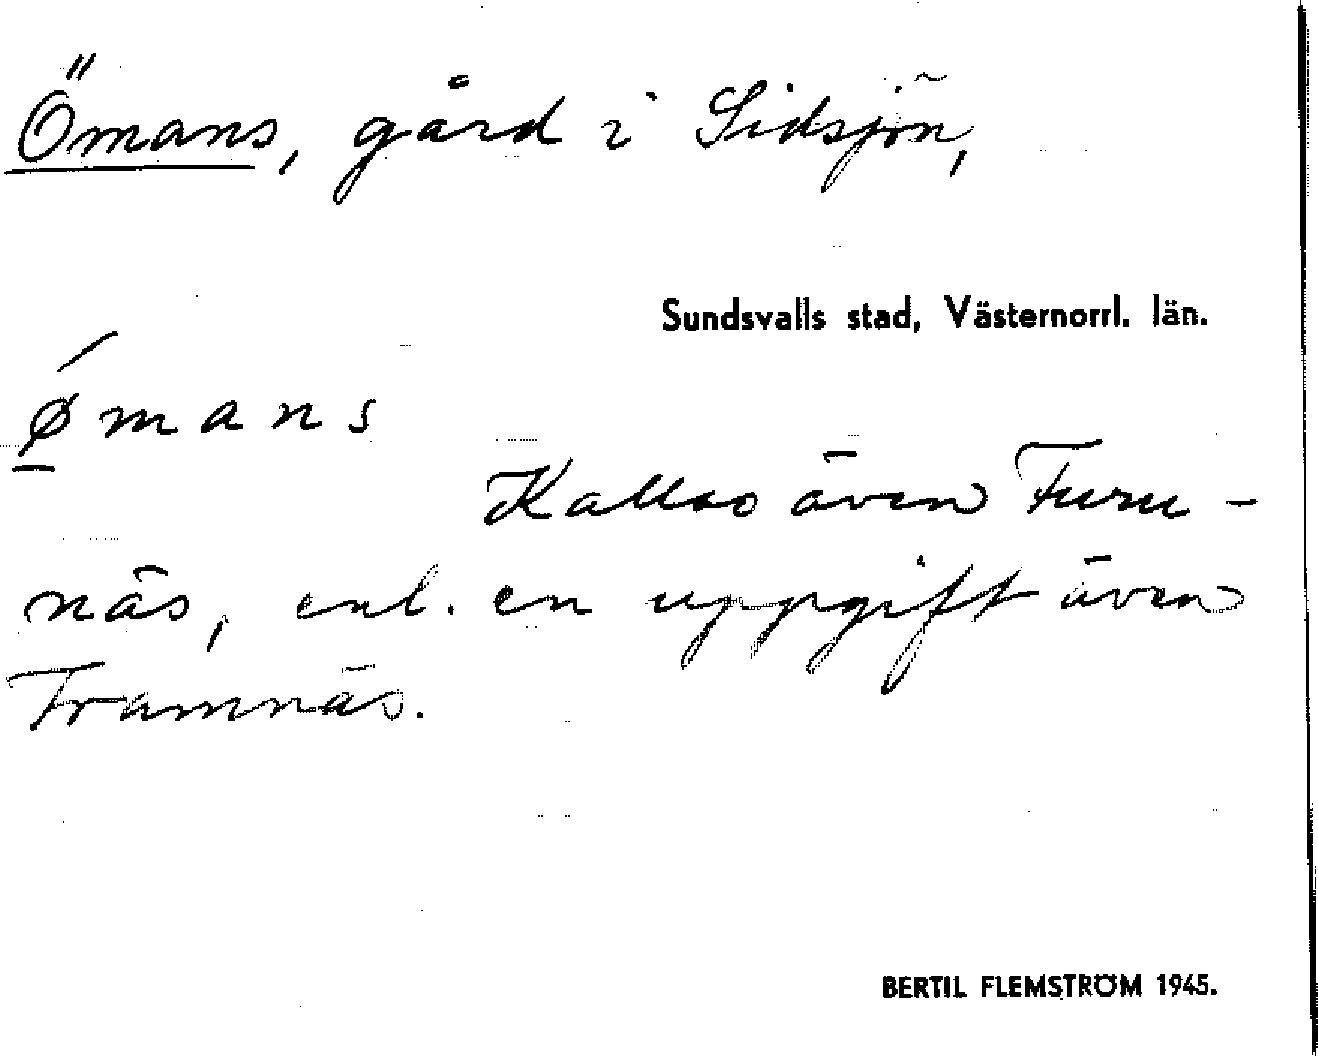 Ömans, gård i Sidsjön,
Sundsvalls stad, Västernorrl. län.
ǿ̱mans
Kallas även Furu-
näs, enl. en uppgift även
Framnäs.
BERTIL FLEMSTRÖM 1945.